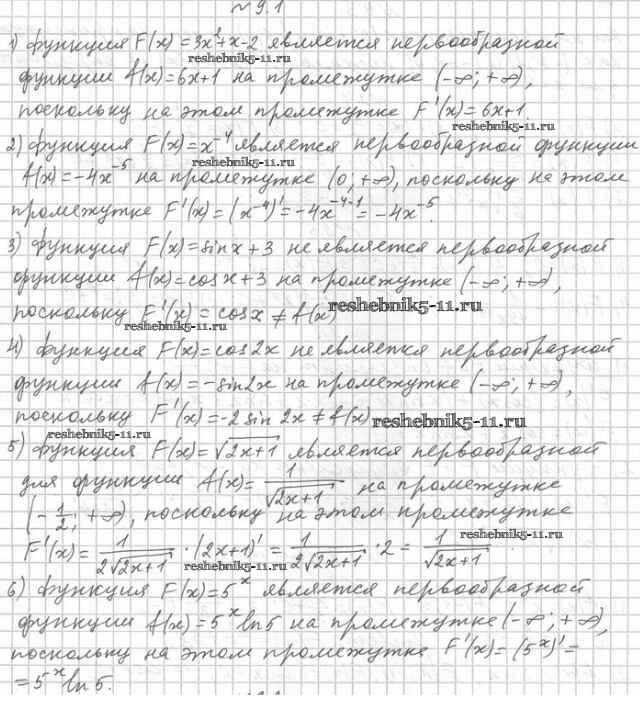 № 9.1
1) функция F(x)=3x²+x-2 является первообразной
reshebnik5-11.ru
функции f(x)=6x+1 на промежутке (-∞; +∞),
поскольку на этом промежутке F'(x)=6x+1.
reshebnik5-11.ru
2) функция F(x)=x⁻⁴ является первообразной функции
reshebnik5-11.ru
f(x)=-4x⁻⁵ на промежутке (0; +∞), поскольку на этом
промежутке F'(x)=(x⁻⁴)'=-4x⁻⁴⁻¹=-4x⁻⁵.
3) функция F(x)=sinx+3 не является первообразной
функции f(x)=cosx+3 на промежутке (-∞; +∞),
поскольку F'(x)=cosx≠f(x)
reshebnik5-11.ru
reshebnik5-11.ru
4) функция F(x)=cos2x не является первообразной
функции f(x)=-sin2x на промежутке (-∞; +∞),
поскольку F'(x)=-2sin2x≠f(x)
reshebnik5-11.ru
reshebnik5-11.ru
5) функция F(x)=√(2x+1) является первообразной
для функции f(x)=1/√(2x+1) на промежутке
reshebnik5-11.ru
(-1/2; +∞), поскольку на этом промежутке
reshebnik5-11.ru
F'(x)=1/(2√(2x+1))·(2x+1)'=1/(2√(2x+1))·2=1/√(2x+1)
reshebnik5-11.ru
6) функция F(x)=5ˣ является первообразной
функции f(x)=5ˣln5 на промежутке (-∞; +∞),
reshebnik5-11.ru
поскольку на этом промежутке F'(x)=(5ˣ)'=
=5ˣln5.